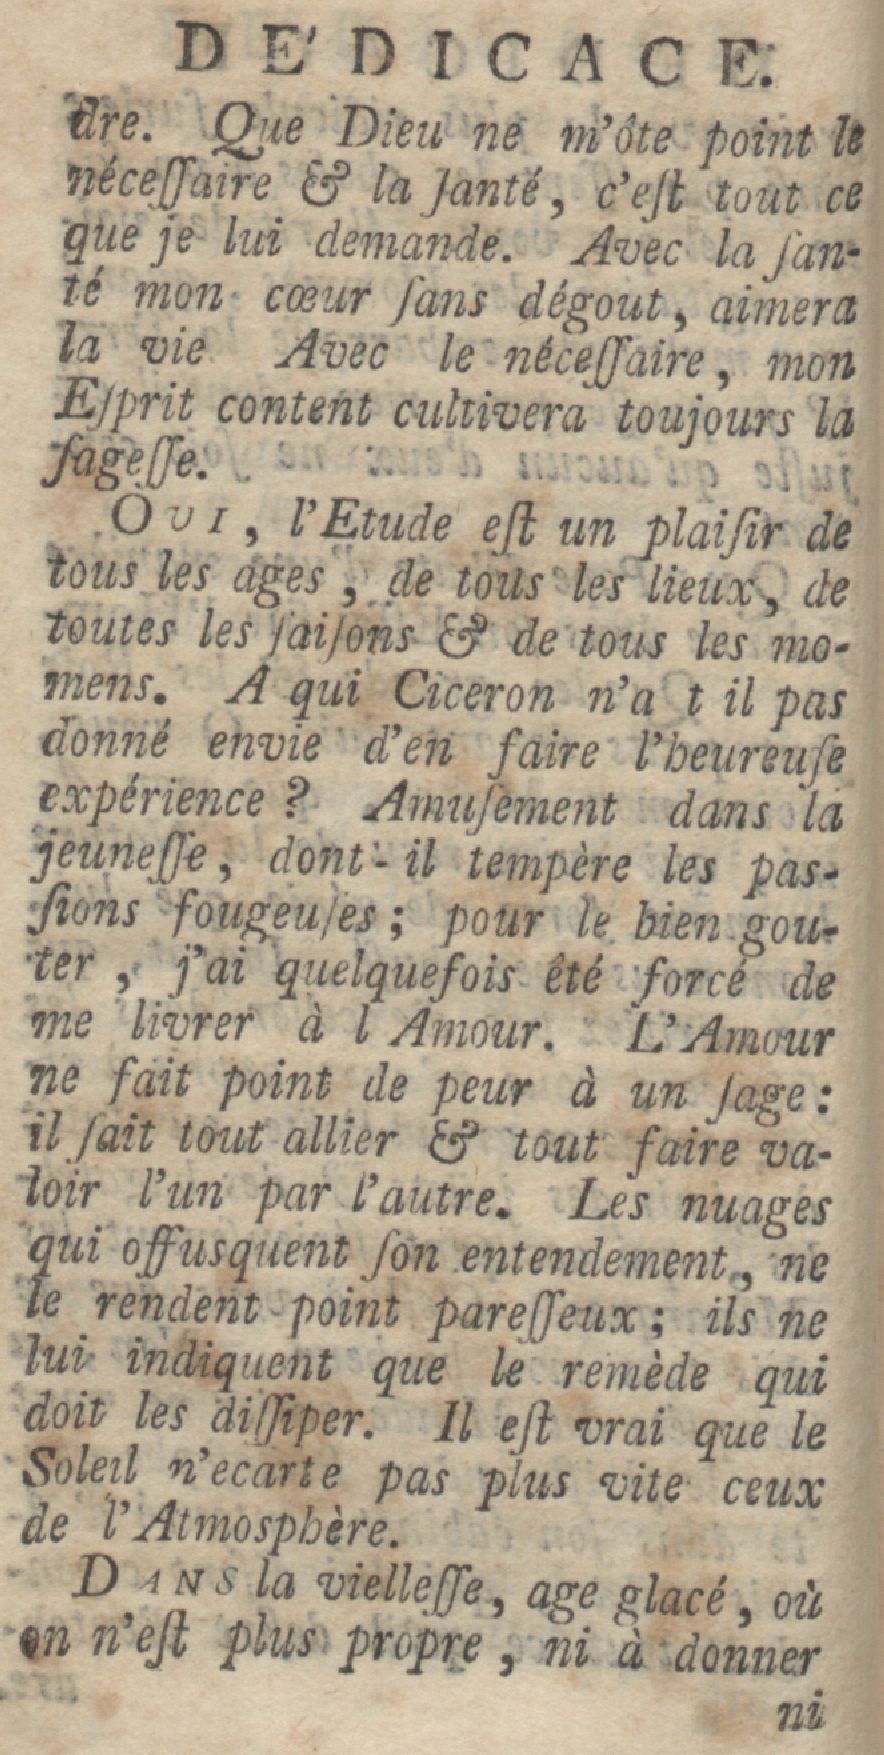 DE'DICACE.
dre. Que Dieu ne m'ôte point le
néceſſaire & la ſanté, c'eſt tout ce
que je lui demande. Avec la ſan-
té mon cœur ſans dégout, aimera
la vie Avec le néceſſaire, mon
Eſprit content cultivera toujours la
ſageſſe.
OUI, l'Etude eſt un plaiſir de
tous les ages, de tous les lieux, de
toutes les ſaiſons & de tous les mo-
mens. A qui Ciceron n'a t il pas
donné envie d'en faire l'heureuſe
expérience? Amuſement dans la
jeuneſſe, dont-il tempère les pas-
ſions fougeuſes; pour le bien gou-
ter, j'ai quelquefois été forcé de
me livrer à l Amour. L'Amour
ne fait point de peur à un ſage:
il ſait tout allier & tout faire va-
loir l'un par l'autre. Les nuages
qui offusquent ſon entendement, ne
le rendent point pareſſeux; ils ne
lui indiquent que le remède qui
doit les diſſiper. Il eſt vrai que le
Soleil n'ecarte pas plus vite ceux
de l'Atmosphère.
DANS la vielleſſe, age glacé, où
on n'eſt plus propre, ni à donner
ni